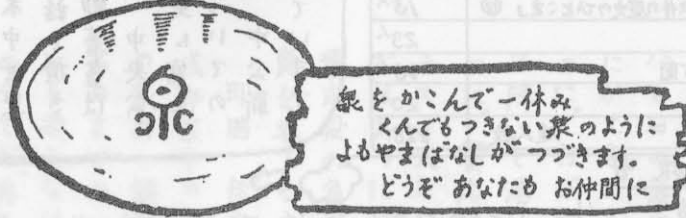 泉をかこんで一休み
くんでもつきない泉のように
よもやまばなしがつづきます。
どうぞ あなたも お仲間に